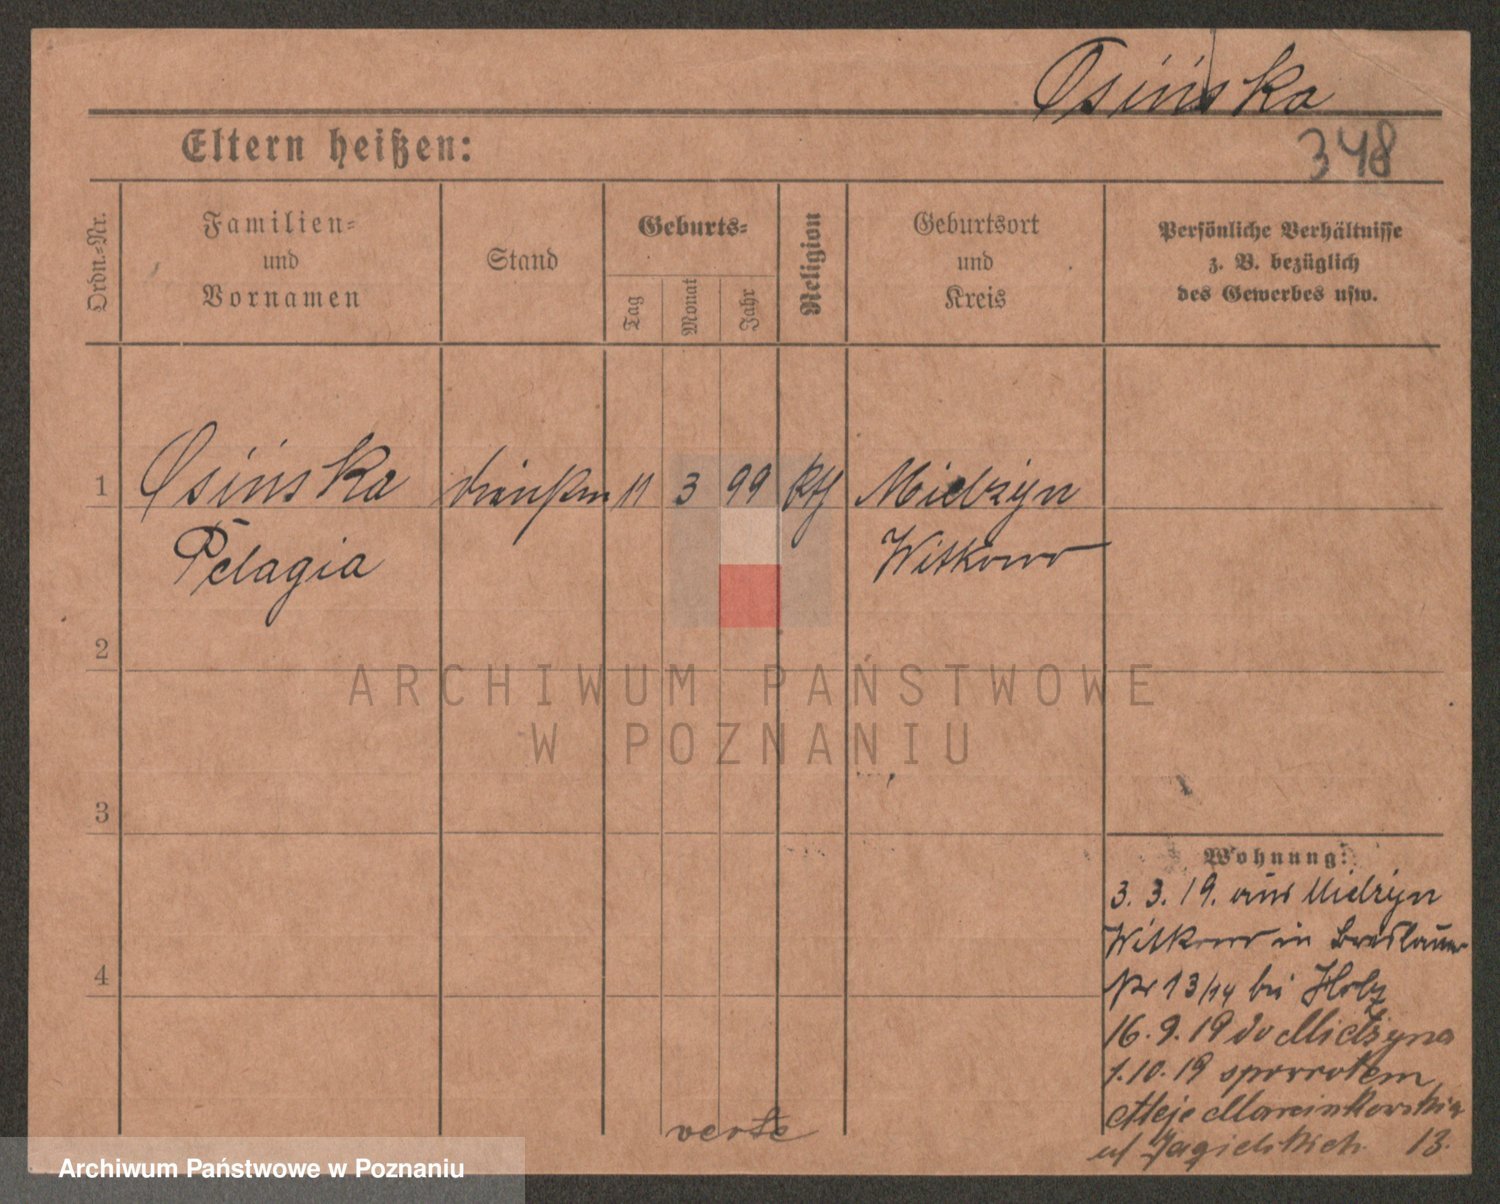 Osińska
348
Eltern heißen:
Ordn.-Nr.
Familien-
und
Vornamen
Stand
Geburts-
Tag
Monat
Jahr
Religion
Geburtsort
und
Kreis
Persönliche Verhältnisse
z. B. bezüglich
des Gewerbes usw.
1 Osińska 11 3 99 kth Mielzyn
Pelagia Witkowo
2
3
4
Wohnung:
3. 3. 19. aus Mielzyn
Witkowo in Breslauer
13/14 bei Holz
16. 9. 19 do Mielżyna
1. 10. 19 spowrotem
Aleje Marcinkowskie
ul Jagielskich 13.
verte
ARCHIWUM PAŃSTWOWE
W POZNANIU
Archiwum Państwowe w Poznaniu